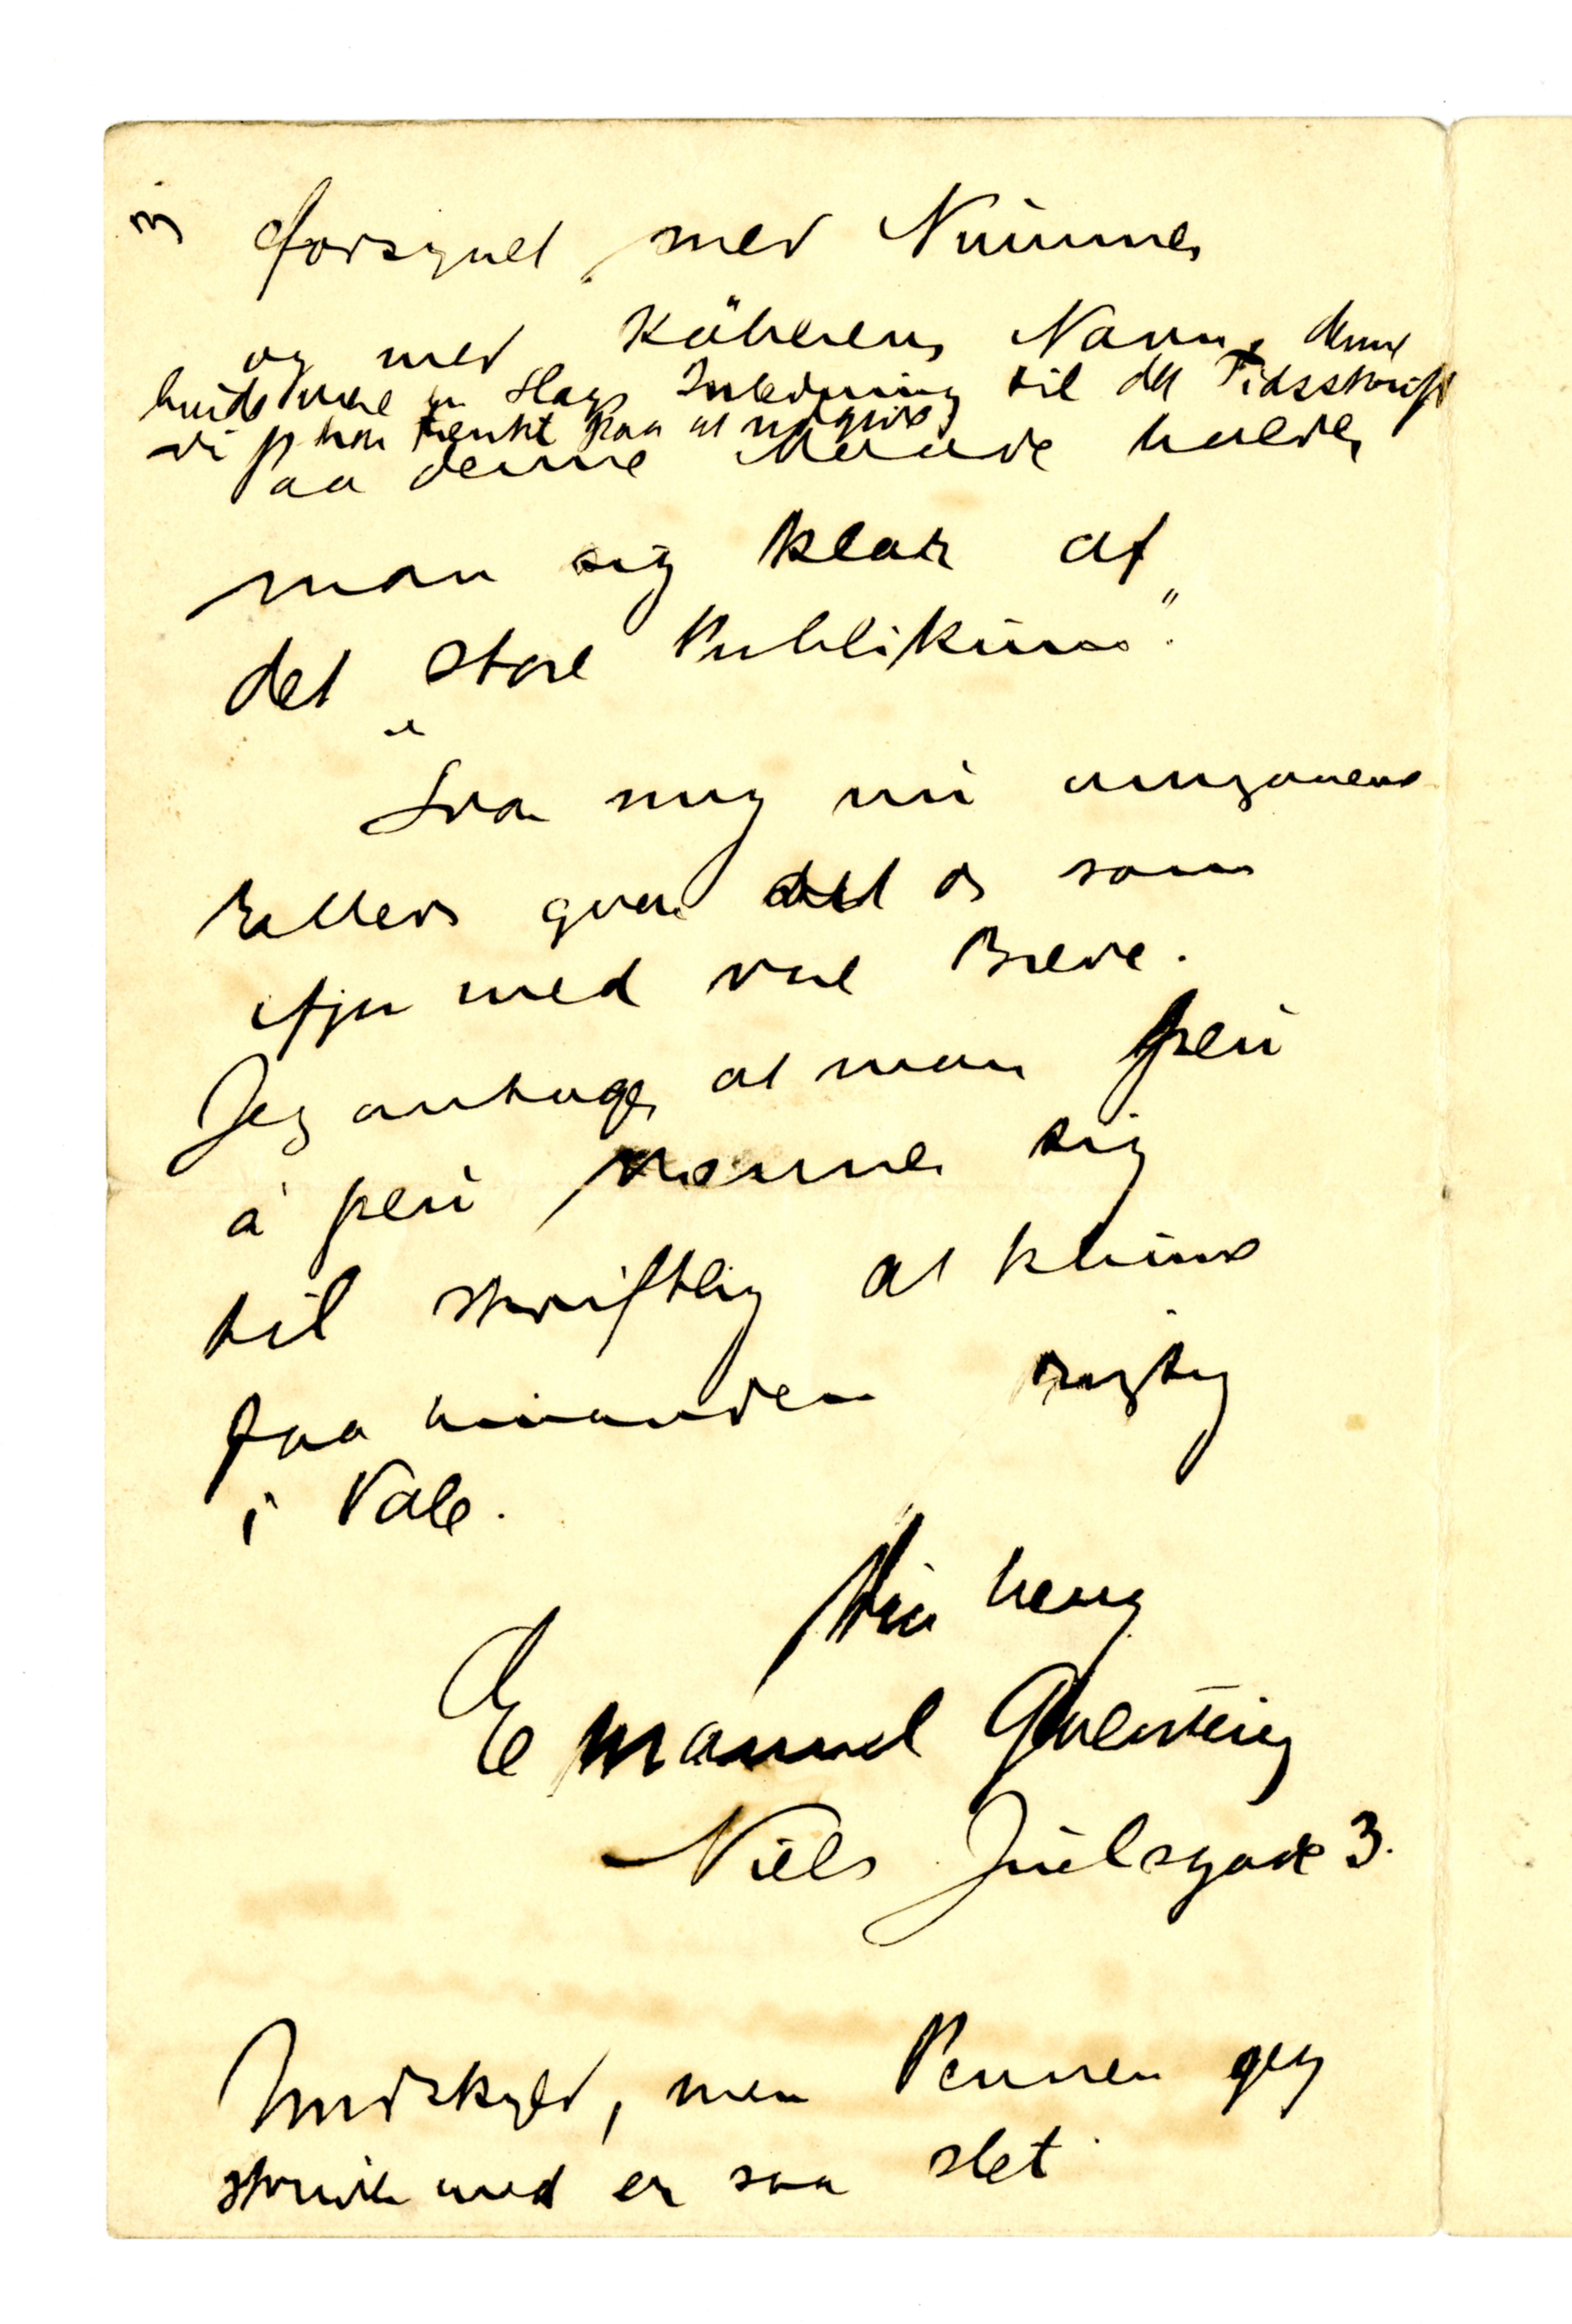 3
forsynet med Nummer
og med Köberens Navn, denne
vilde være en Slags Indledning til det Tidsskrift
vi jo har tænkt paa at udgive
Paa denne Maade holder
man sig klar af
det „store Publikum".
Svar mig nu omgaaende
Ellers gaar det os som
för med vore Breve.
Jeg antager at man peu
à peu vænner sig
til skriftlig at kunne
faa hinanden rigtig
i Tale.
Din heng
Emanuel Goldstein
Niels Juelsgade 3.
Undskyld, men Pennen jeg
skriver med er saa slet